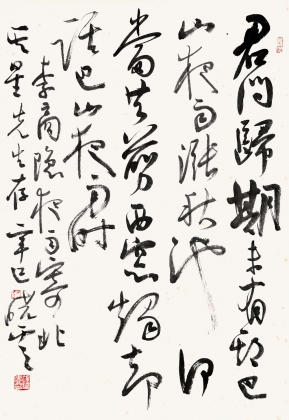 君問歸期未有期巴
山夜雨漲秋池何
當共剪西窓燭却
話巴山夜雨时
李商隐夜雨寄北
星先生存辛巳